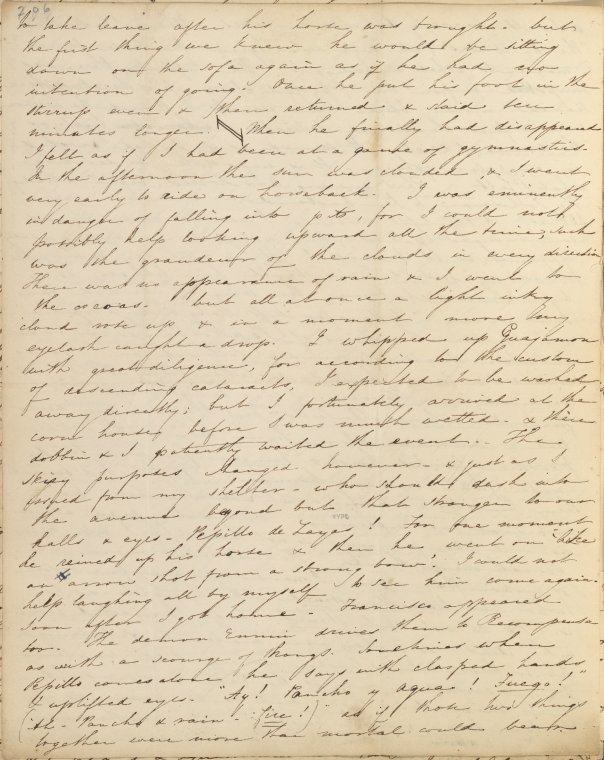 296
to take leave after his horse was brought - but
the first thing we knew he would be sitting
down on the sofa again as if he had no
intention of going. Once he put his foot in the
stirrup even & then returned & staid ten
minutes longer. When he finally had disappeared
I felt as if I had been at a game of gymnastics.
In the afternoon the sun was clouded, & I went
very early to ride on horseback. I was eminently
in danger of falling into pits, for I could not
possibly help looking upward all the time, such
was the grandeur of the clouds in every direction
There was no appearance of rain & I went to
the cocoas. but all at once a light inky
cloud rose up & in a moment more my
eyelash caught a drop. I whipped up Guajamon
with great diligence, for according to the custom
of descending cataracts, I expected to be washed
away directly; but I fortunately arrived at the
corn house before I was much wetted. & there
dobbin & I patiently waited the event. The
skiey purposes changed however - & just as I
issued from my shelter - who should dash into
the avenue beyond but that stranger to our
halls & eyes - Pepillo de Layas! For one moment
he reined up his horse & then he went on "like
an arrow shot from a strong bow". I could not
help laughing all by myself to see him come again.
Soon after I got home - Francisco appeared
too. The demon Ennui drives them to Recompensa
as with a scourge of thongs. Sometimes when
Pepillo comes alone he says with clasped hands
& uplifted eyes - "Ay! Pancho y agua! Fuego!"
(Ah - Pancho & rain - fire!) as if those two things
together were more than mortal could bear.